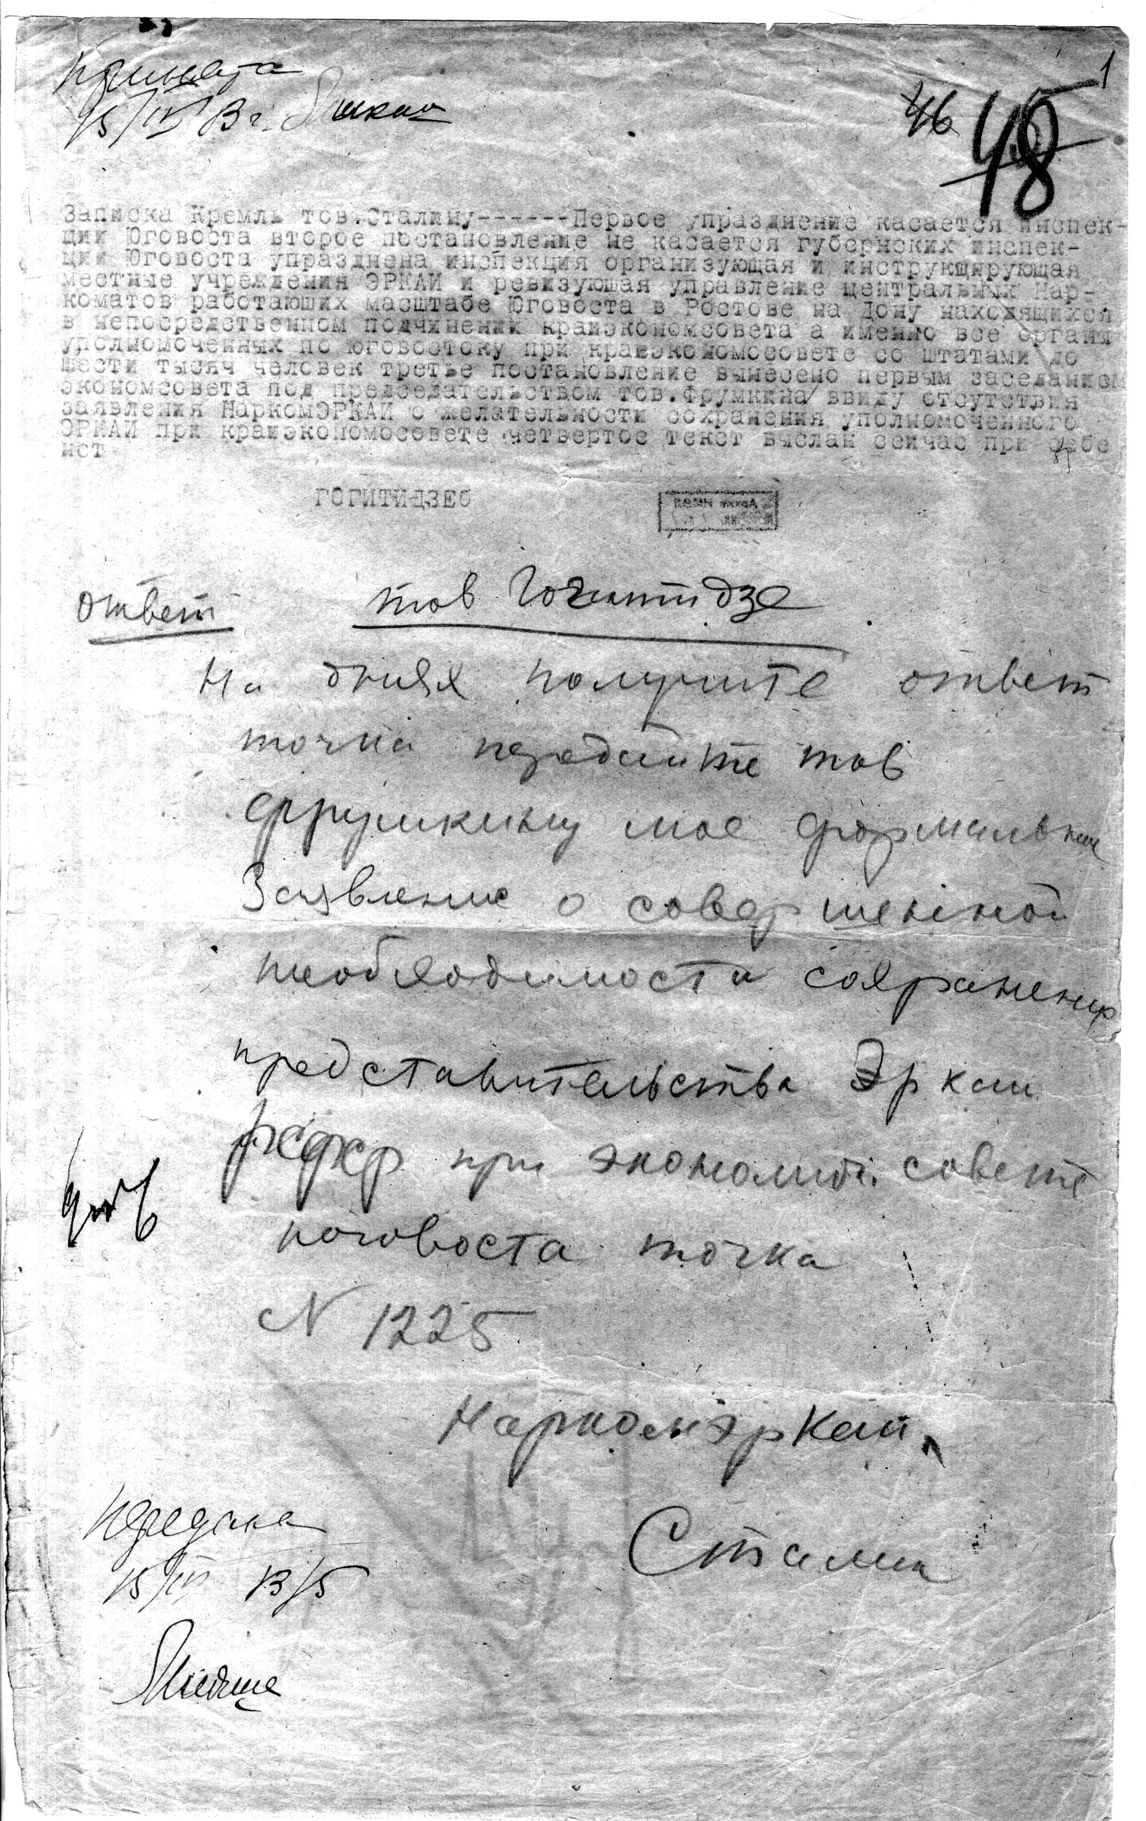 1
Принята
46 48
Записка Кремль тов.Сталину------Первое упразднение касается инспек-
ции Юговоста второе постановление не касается губернских инспек-
ций Юговоста упразднена инспекция организующая и инструкцирующая
местные учреждения ЭРКАИ и ревизующая управление центральных Нар-
коматов работаюших масштабе Юговоста в Ростове на Дону находящихся
в непосредственном подчинении крайэкономсовета а именно все органы
уполномоченных по юговостоку при крайэкономосовете со штатами до
шести тысяч человек третье постановление вынесено первым заседанием
экономсовета под председательством тов.Фрумкина ввиду отсутствия
заявления НаркомЭРКАИ о желательности сохранения уполномоченного
ЭРКАИ при крайэкономосовете четвертое текст выслан сейчас при себе
нет
ГОГИТИДЗЕ
ответ тов Гогитидзе
На днях получите ответ
точка передайте тов
Фрумкину мое формальное
Заявление о совершенной
необходимости сохранения
представительства Эркаи
РСФСР при экономич. совете
юговоста точка
N 1225
Наркомэркаи
Сталин
Передана
15/III 13/5